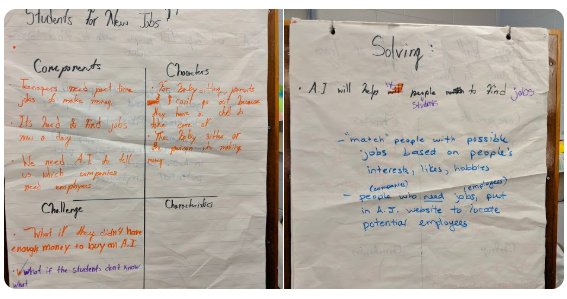 Students For New Jobs
Components
Teenagers need part time
jobs to make money.
It's hard to find jobs
now a day
We need A.I to tell
us which companies
need employees
Characters
For baby sitting, parents
can't go out because
they have a
take care of.
The baby sitter or
the person is making
money
Challenge
What if they didn't have
enough money to buy an A.I
What if the students don't know
what
Characteristics
Solving:
A.I will help people to find jobs
students
"match" people with possible
jobs based on people's
interest, likes, hobbies
(companies) (employees)
people who need jobs, put
in A.I. website to locate
potential employees